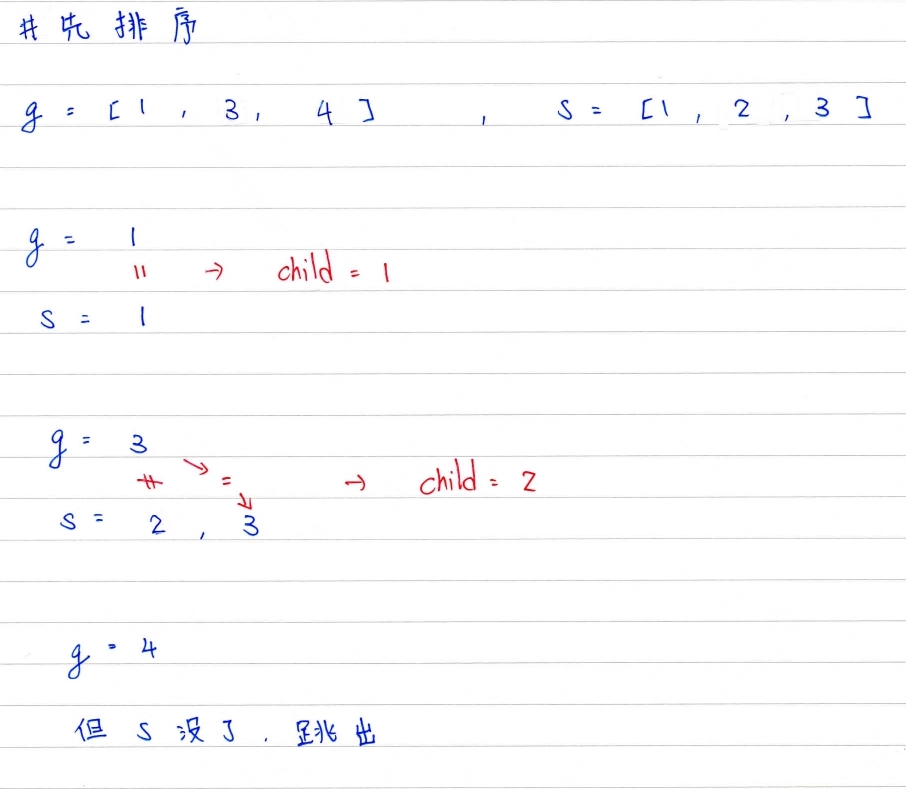 # 先排序
g = [1, 3, 4] , s = [1, 2, 3]
g = 1
= → child = 1
s = 1
g = 3
≠ ↘ = ↘ → child = 2
s = 2, 3
g = 4
但 s 没了, 跳出